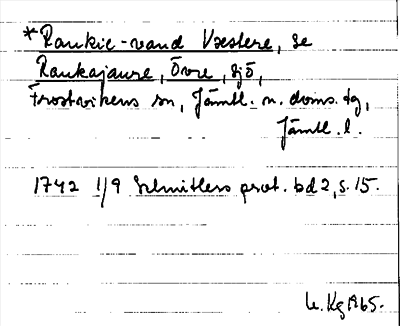 *Raukie-vand Væstere, se
Raukajaure, Övre, sjö,
Frostvikens sn, Jämtl. n. doms. tg,
Jämtl. l.
1742 1/9 Schnitlers prot. bd 2, s. 15.
Kg 1965.